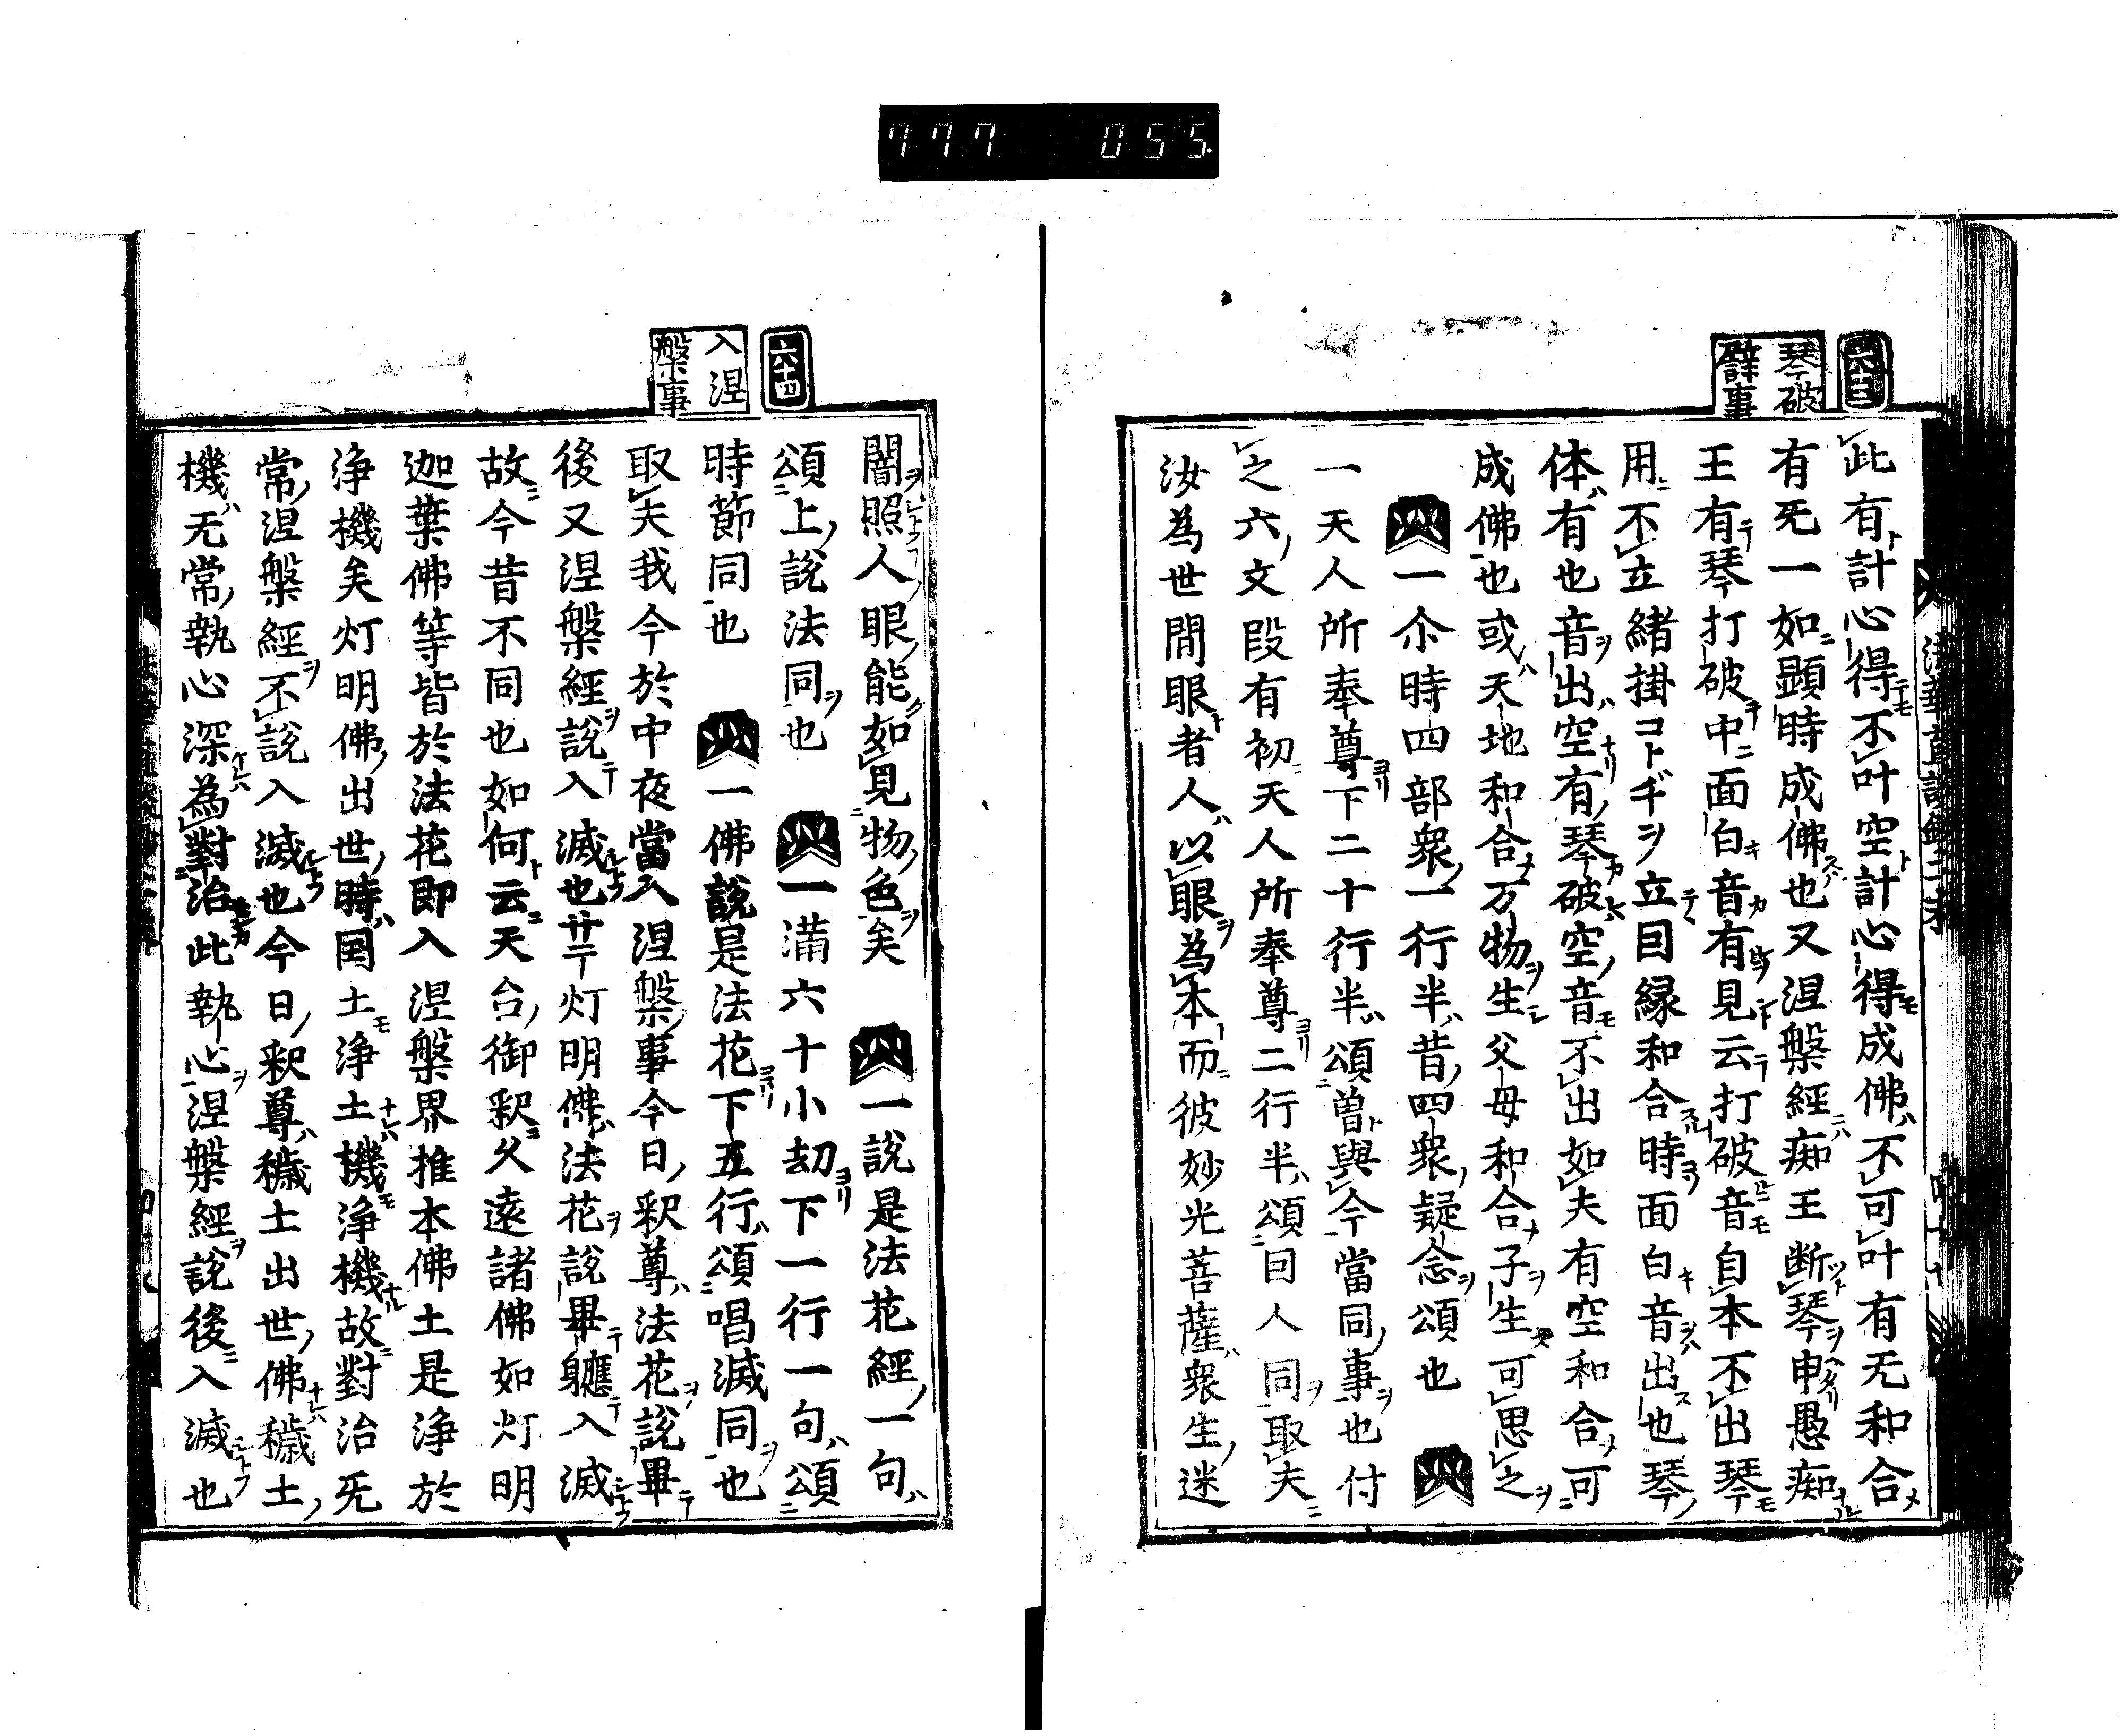 777 055
六十三
琴破
譬事
此有計心得不叶空計心得成佛不可叶有无和合
有死一如顕時成佛也又涅槃經痴王断琴申愚痴
王有琴打破中面白音有見云打破音自本不出琴
用不立緒掛コトヂヲ立因縁和合時面白音出也琴
体有也音出空有琴破空音不出如夫有空和合可
成佛也或天地和合万物生父母和合子生可思之
一尒時四部衆一行半昔四衆疑念頌也
一天人所奉尊下二十行半頌曽與今當同事也付
之六文段有初天人所奉尊二行半頌曰人同取夫
汝為世間眼者人以眼為本而彼妙光菩薩衆生迷
六十四
入涅
槃事
闇照人眼能如見物色矣 一說是法花經一句
頌上說法同也 一滿六十小劫下一行一句頌
時節同也 一佛說是法花下五行頌唱滅同也
取夫我今於中夜當入涅槃事今日釈尊法花說畢
後又涅槃經說入滅也廿一灯明佛法花說畢軈入滅
故今昔不同也如何云天台御釈久遠諸佛如灯明
迦葉佛等皆於法花即入涅槃界推本佛土是浄於
浄機矣灯明佛出世時国土浄土機浄機故對治无
常涅槃經不說入滅也今日釈尊穢土出世佛穢土
機无常執心深為對治此執心涅槃經說後入滅也